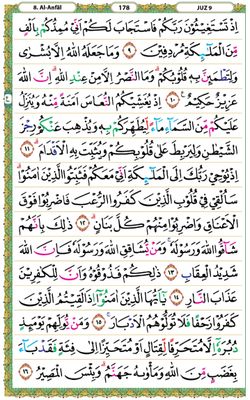 8. Al-Anfâl 178 JUZ 9
إِذْ تَسْتَغِيثُونَ رَبَّكُمْ فَاسْتَجَابَ لَكُمْ أَنِّي مُمِدُّكُمْ بِأَلْفٍ
مِّنَ الْمَلٰٓئِكَةِ مُرْدِفِينَ ٩ وَمَا جَعَلَهُ اللّٰهُ إِلَّا بُشْرٰى
وَلِتَطْمَئِنَّ بِهٖ قُلُوبُكُمْ وَمَا النَّصْرُ إِلَّا مِنْ عِنْدِ اللّٰهِ إِنَّ اللّٰهَ
عَزِيزٌ حَكِيمٌ ١٠ إِذْ يُغَشِّيكُمُ النُّعَاسَ أَمَنَةً مِّنْهُ وَيُنَزِّلُ
عَلَيْكُمْ مِّنَ السَّمَآءِ مَآءً لِّيُطَهِّرَكُمْ بِهٖ وَيُذْهِبَ عَنْكُمْ رِجْزَ
الشَّيْطٰنِ وَلِيَرْبِطَ عَلٰى قُلُوبِكُمْ وَيُثَبِّتَ بِهِ الْأَقْدَامَ ١١
إِذْ يُوحِي رَبُّكَ إِلَى الْمَلٰٓئِكَةِ أَنِّي مَعَكُمْ فَثَبِّتُوا الَّذِينَ اٰمَنُوا
سَأُلْقِي فِي قُلُوبِ الَّذِينَ كَفَرُوا الرُّعْبَ فَاضْرِبُوا فَوْقَ
الْأَعْنَاقِ وَاضْرِبُوا مِنْهُمْ كُلَّ بَنَانٍ ١٢ ذٰلِكَ بِأَنَّهُمْ
شَآقُّوا اللّٰهَ وَرَسُولَهٗ وَمَنْ يُّشَاقِقِ اللّٰهَ وَرَسُولَهٗ فَإِنَّ اللّٰهَ
شَدِيدُ الْعِقَابِ ١٣ ذٰلِكُمْ فَذُوقُوهُ وَأَنَّ لِلْكٰفِرِينَ
عَذَابَ النَّارِ ١٤ يٰٓأَيُّهَا الَّذِينَ اٰمَنُوا إِذَا لَقِيتُمُ الَّذِينَ
كَفَرُوا زَحْفًا فَلَا تُوَلُّوهُمُ الْأَدْبَارَ ١٥ وَمَنْ يُّوَلِّهِمْ يَوْمَئِذٍ
دُبُرَهٗٓ إِلَّا مُتَحَرِّفًا لِّقِتَالٍ أَوْ مُتَحَيِّزًا إِلٰى فِئَةٍ فَقَدْ بَآءَ
بِغَضَبٍ مِّنَ اللّٰهِ وَمَأْوٰىهُ جَهَنَّمُ وَبِئْسَ الْمَصِيرُ ١٦